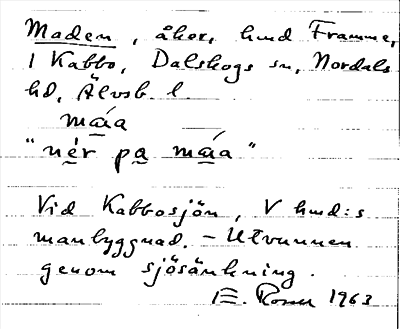 Maden, åker, hmd Framme,
1 Kabbo, Dalskogs sn, Nordals
hd, Älvsb. l.
máa
"nér pa máa"
Vid Kabbosjön, V hmd:s
manbyggnad. – Utvunnen
genom sjösänkning.
Rosen 1963